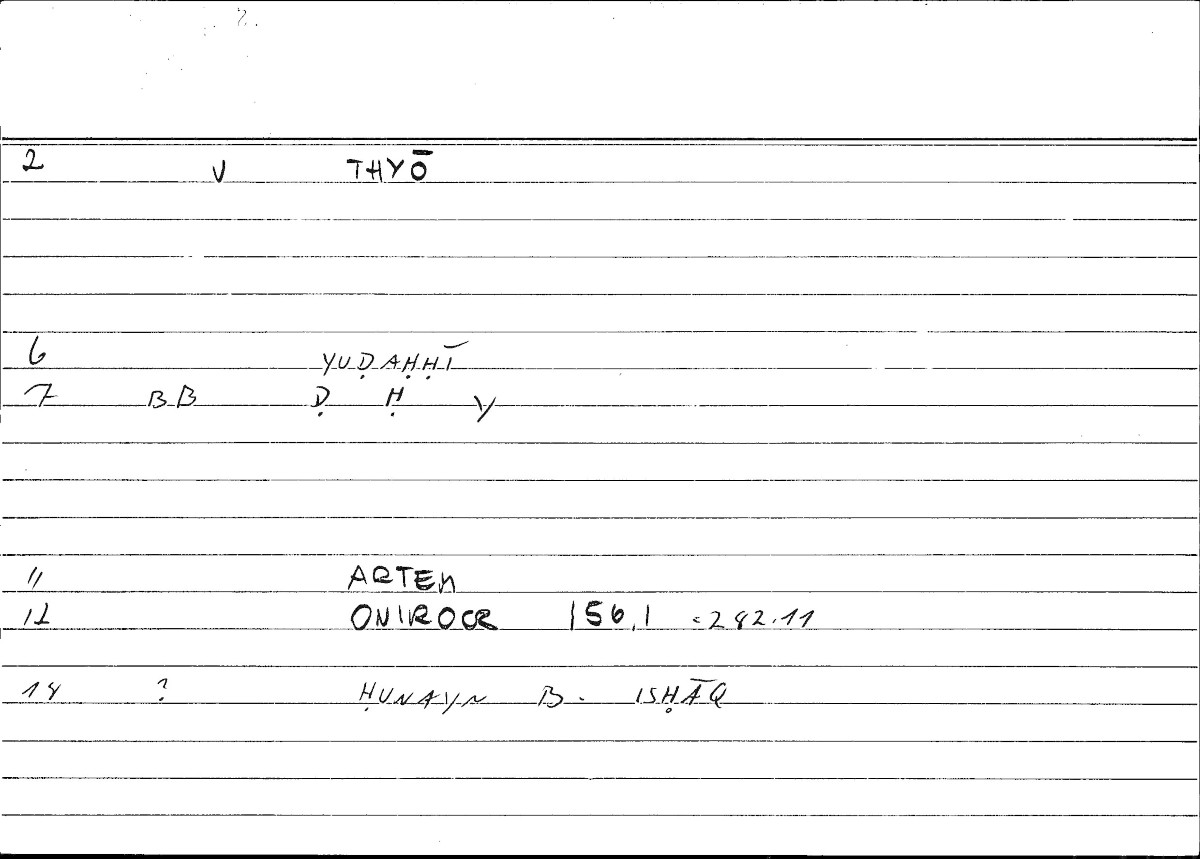 2 V THYŌ
6 YUḌAḤḤĪ
7 BB Ḍ Ḥ Y
11 ARTEM
12 ONIROCR 156,1 = 282.11
18 ? ḤUNAYN B. ISḤĀQ